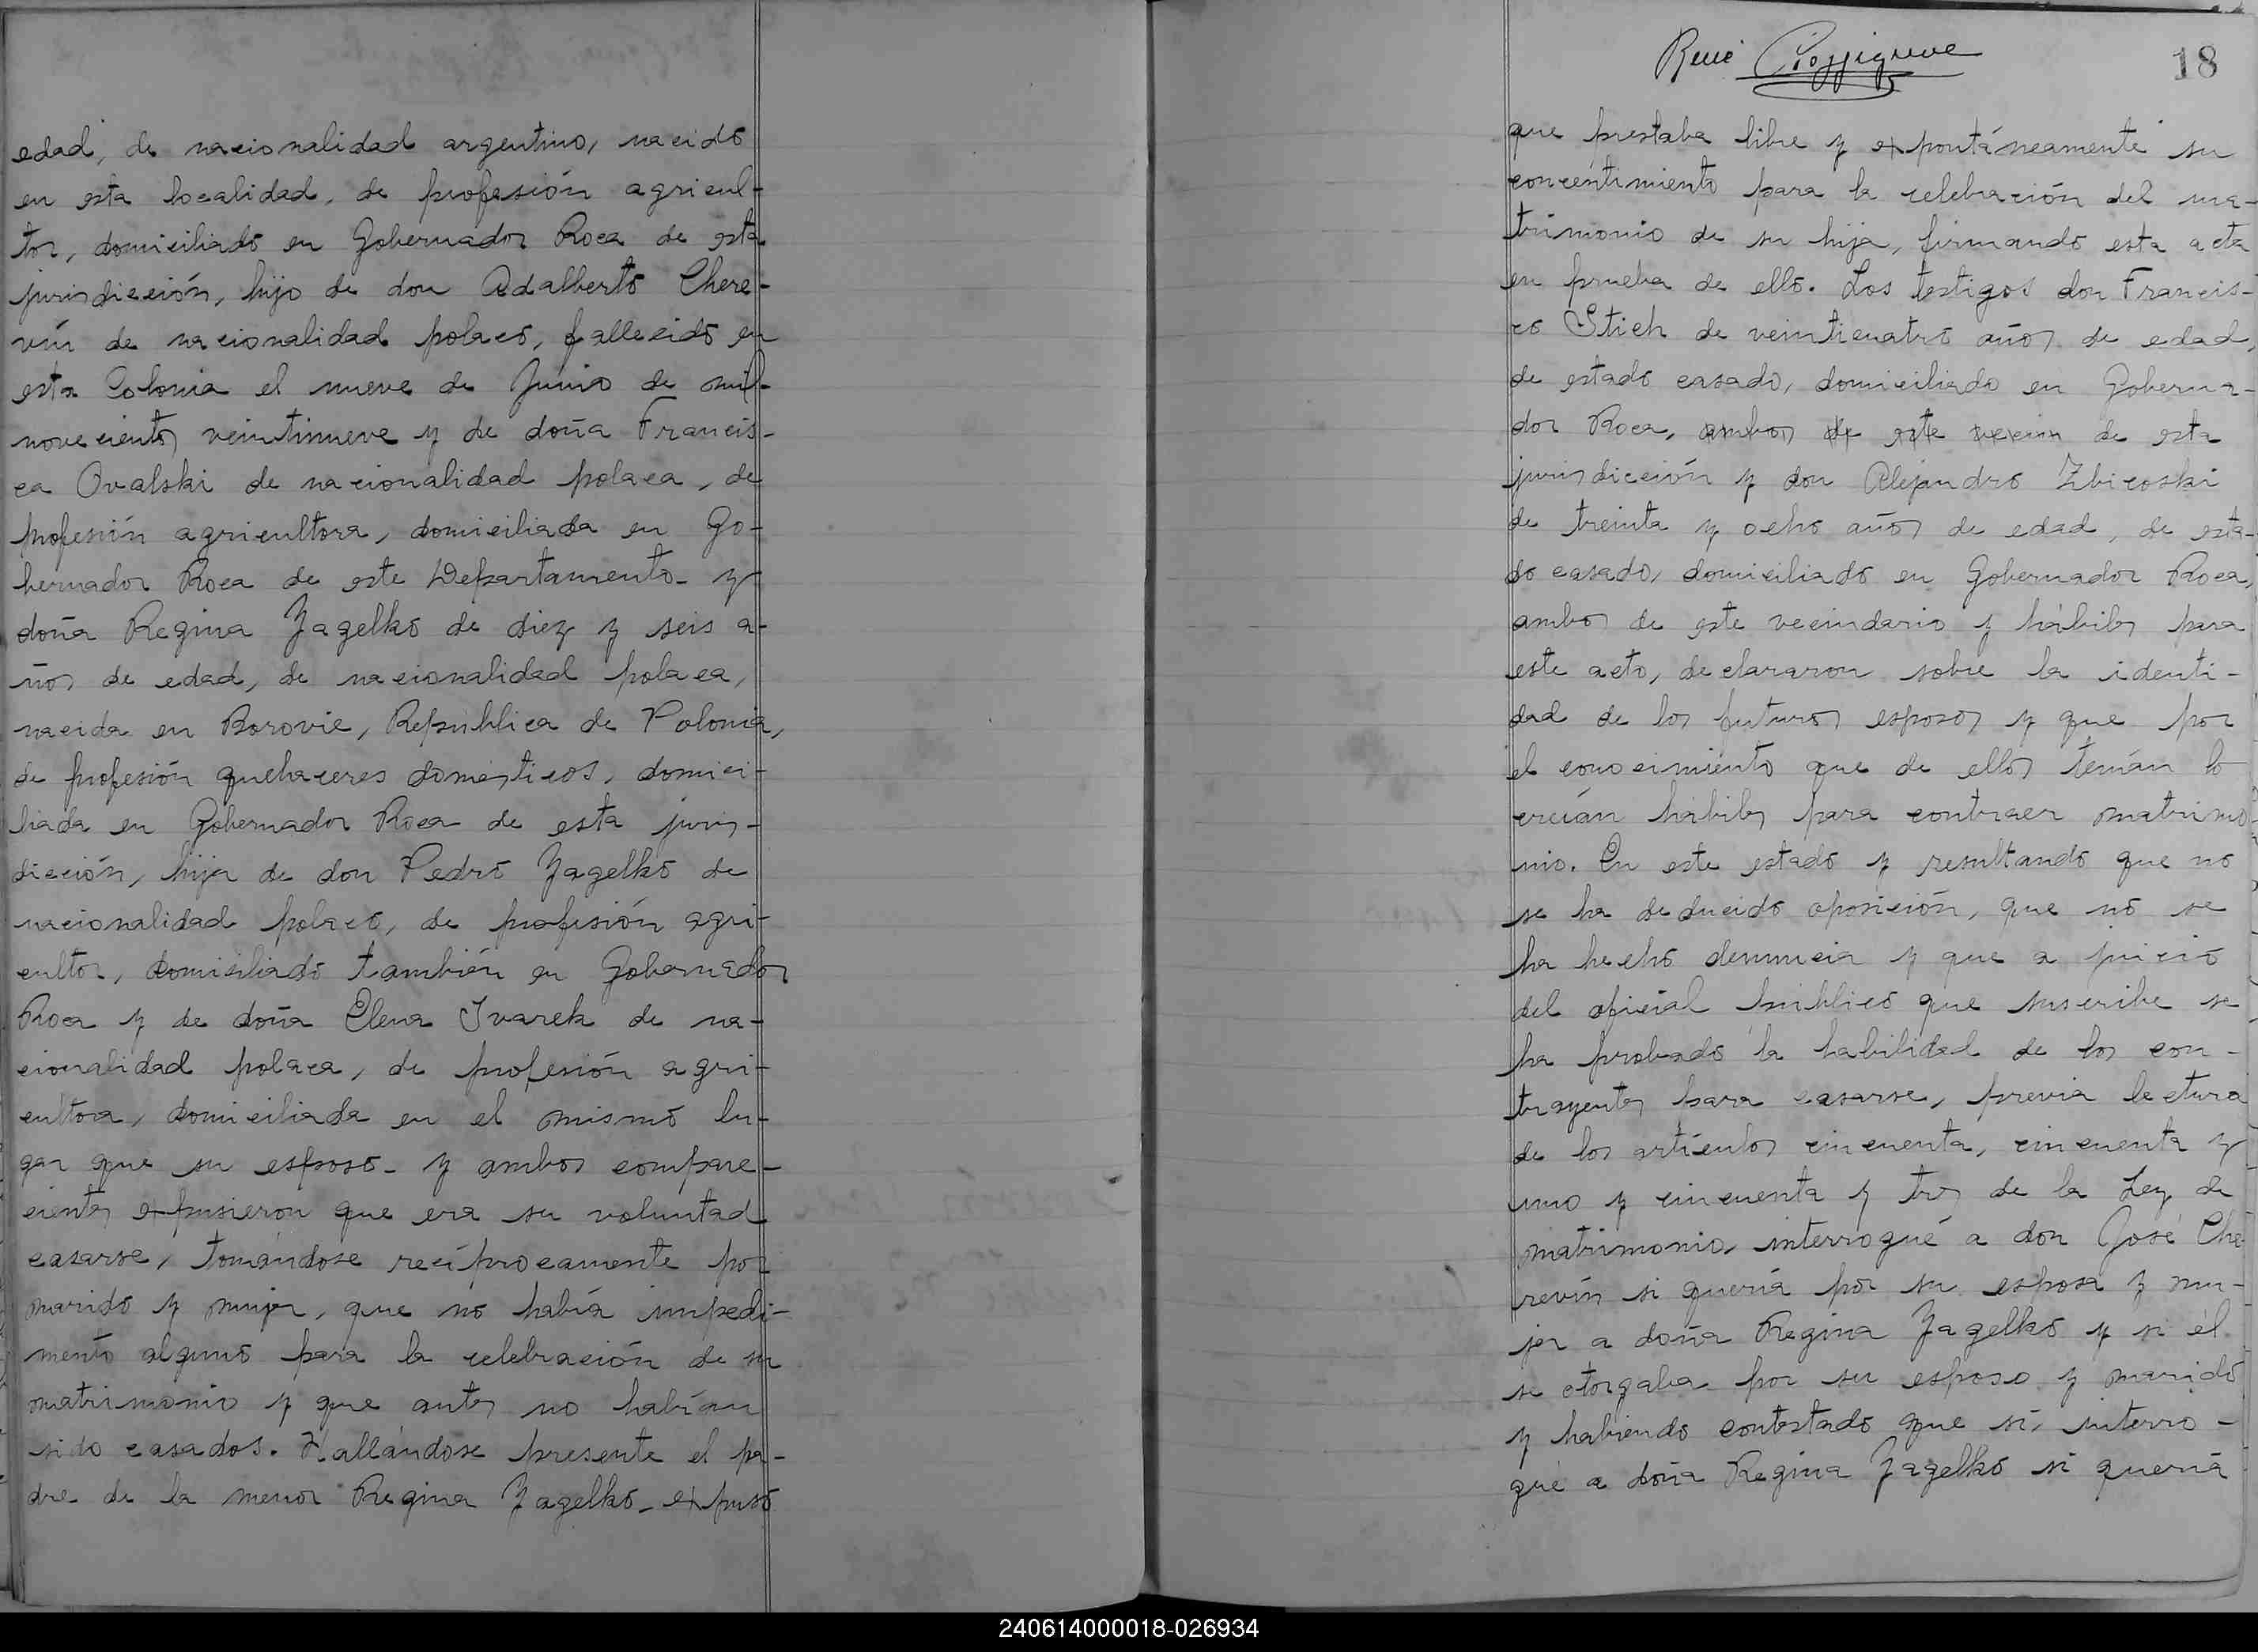 edad, de nacionalidad argentino, nacido
en esta localidad, de profesión agricul-
tor, domiciliado en Gobernador Roca de esta
jurisdicción, hijo de don Adalberto Chere-
vín de nacionalidad polaco, fallecido en
esta Colonia el nueve de Junio de mil
novecientos veintinueve y de doña Francis-
ca Ovalski de nacionalidad polaca, de
profesión agricultora, domiciliada en Go-
bernador Roca de este Departamento- y
doña Regina Zagelko de diez y seis a-
ños de edad, de nacionalidad polaca,
nacida en Borovie, República de Polonia,
de profesión quehaceres domésticos, domici-
liada en Gobernador Roca de esta juris-
dicción, hija de don Pedro Zagelko de
nacionalidad polaco, de profesión agri-
cultor, domiciliado también en Gobernador
Roca y de doña Elena Ivarek de na-
cionalidad polaca, de profesión agri-
cultora, domiciliada en el mismo lu-
gar que su esposo- y ambos compare-
cientes expusieron que era su voluntad
casarse, tomándose recíprocamente por
marido y mujer, que no había impedi-
mento alguno para la celebración de su
matrimonio y que antes no habían
sido casados. Hallándose presente el pa-
dre de la menor Regina Zagelko- expuso
René
18
que prestaba libre y expontáneamente su
concentimiento para la celebración del ma-
trimonio de su hija, firmando esta acta
en prueba de ello. Los testigos don Francis-
co Stich de veinticuatro años de edad,
de estado casado, domiciliado en Goberna-
dor Roca, ambos de este vecin de esta
jurisdicción y don Alejandro Zbicoski
de treinta y ocho años de edad, de esta-
do casado, domiciliado en Gobernador Roca,
ambos de este vecindario y hábiles para
este acto, declararon sobre la identi-
dad de los futuros esposos y que por
el conocimiento que de ellos tenían lo
creían hábiles para contraer matrimo-
nio. En este estado y resultando que no
se ha deducido oposición, que no se
ha hecho denuncia y que a juicio
del oficial público que suscribe se
ha probado la habilidad de los con-
trayentes para casarse, previa lectura
de los artículos cincuenta, cincuenta y
uno y cincuenta y tres de la Ley de
matrimonio, interrogué a don José Che
revín si quería por su esposa y mu-
jer a doña Regina Zagelko y si él
se otorgaba por su esposo y marido
y habiendo contestado que sí, interro-
gué a doña Regina Zagelko si quería
240614000018-026934